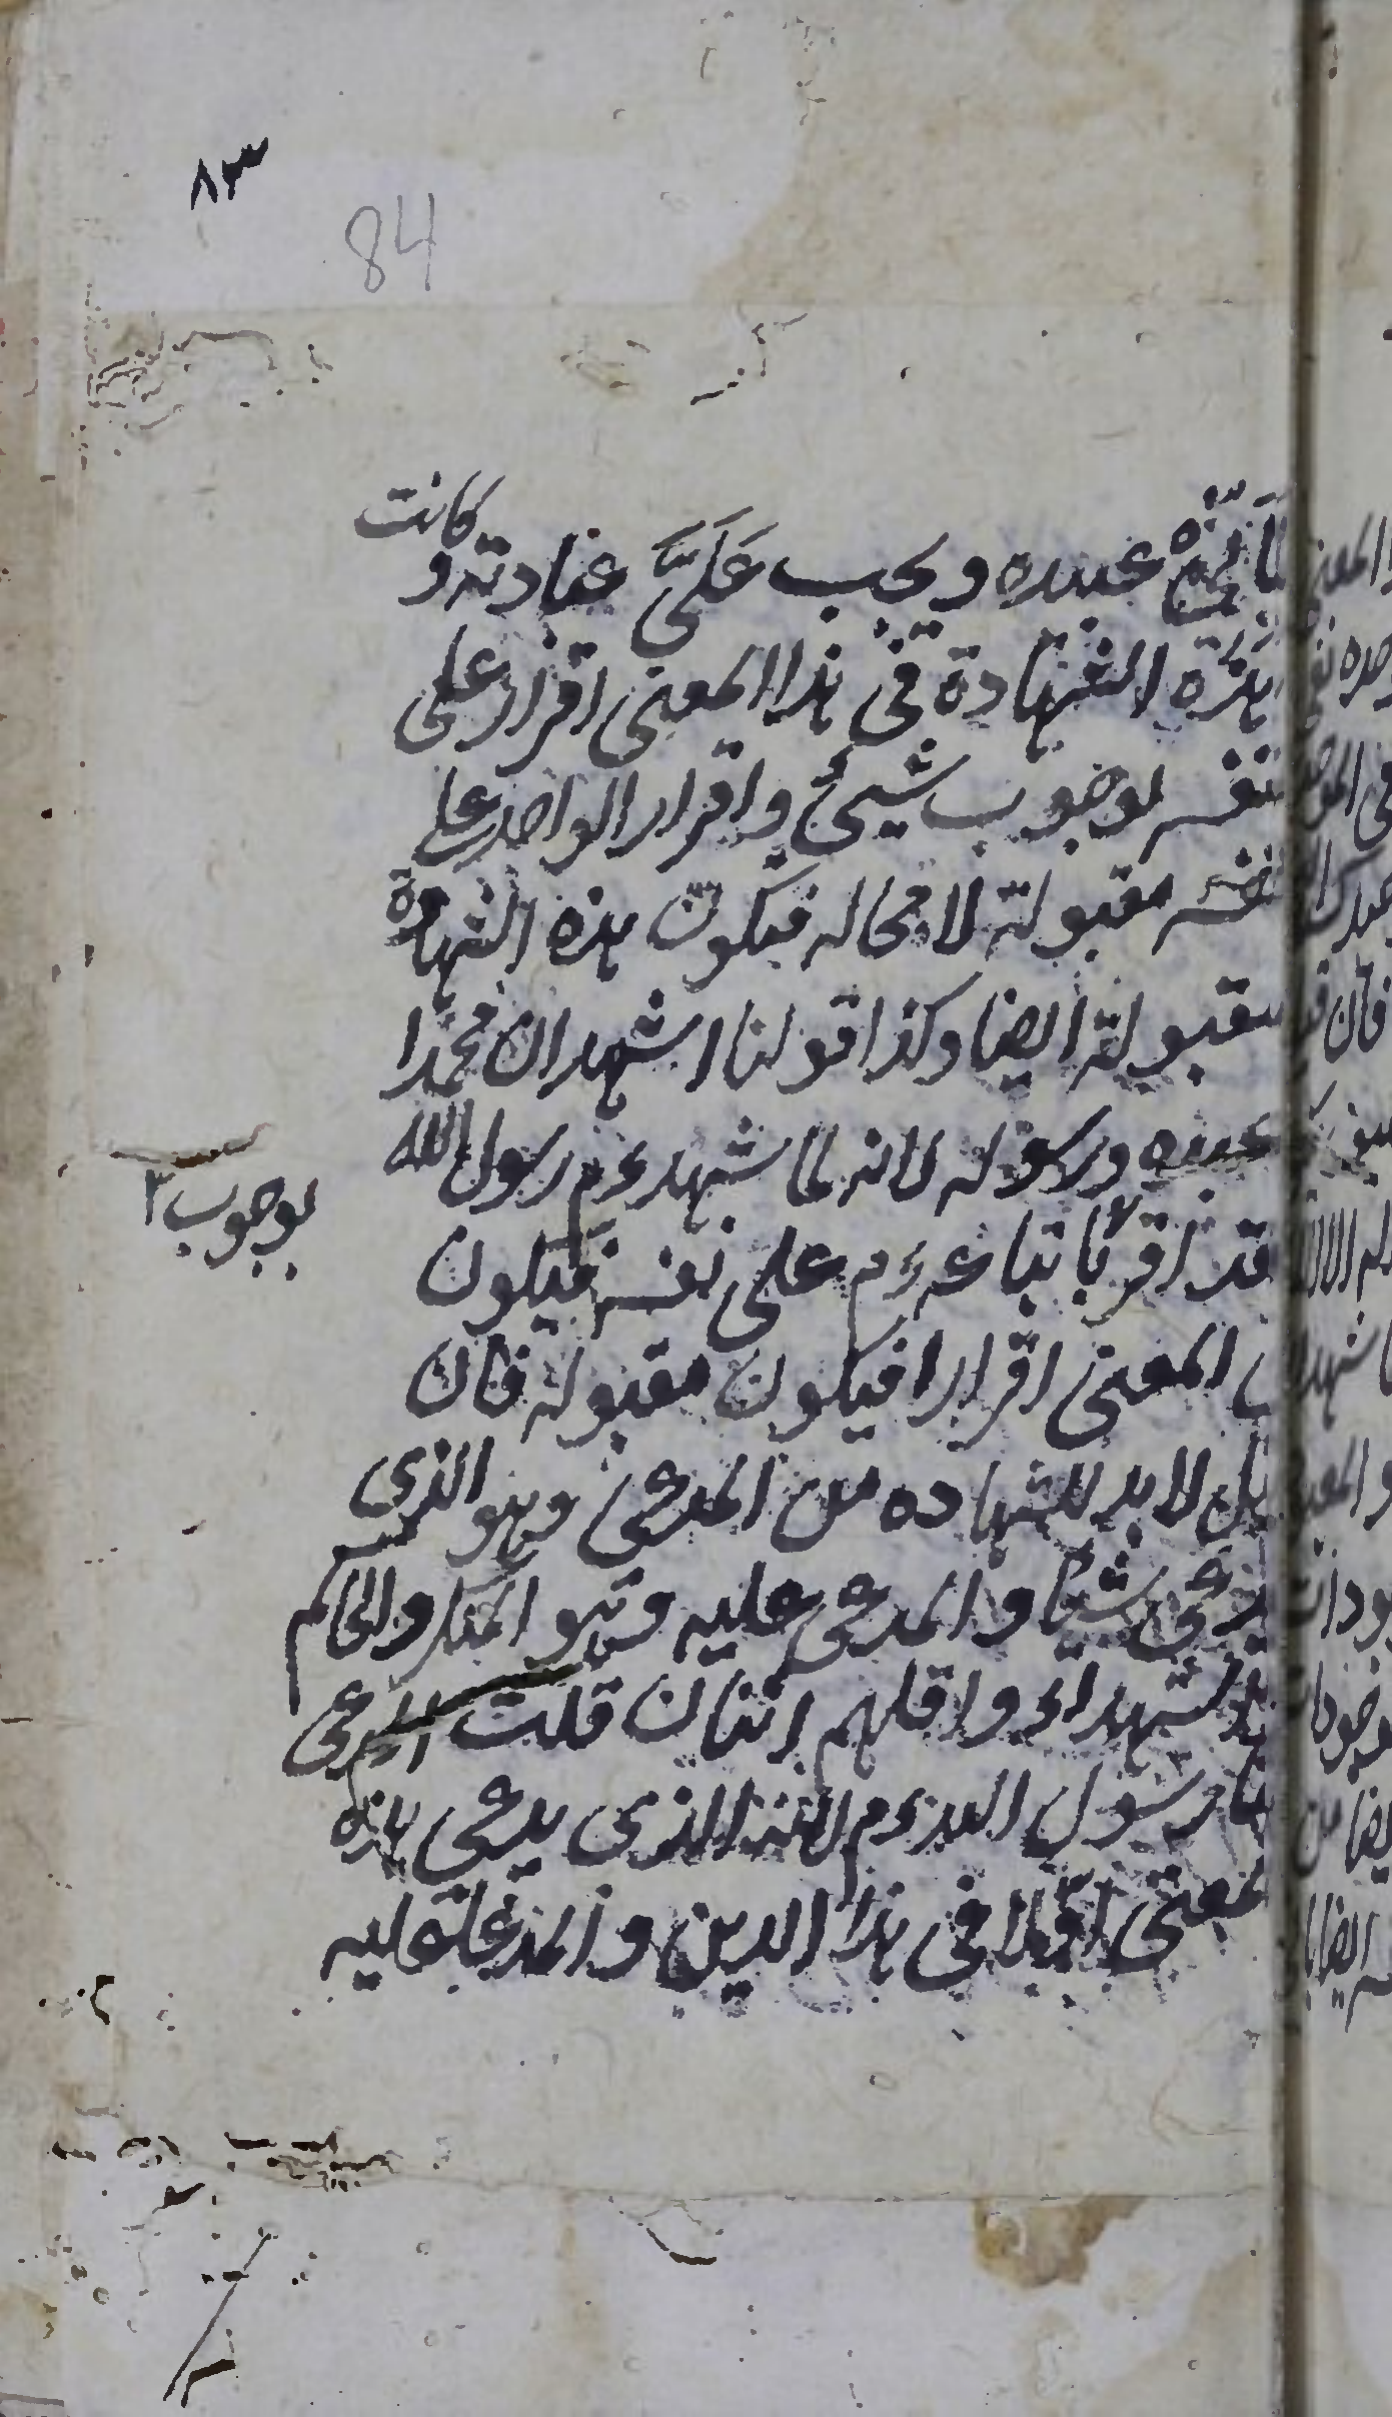 ٨٣
84
عبيده ويجب عَلَيَّ عبادته و كانت
هذه الشهادة في هذا المعنى اقرار على
نفسه لوجوب شيئ واقرار الواحد على
نفسه مقبولة لا محاله فيكون هذه الشهادة
مقبولة ايضا وكذا قولنا اشهد ان محمدا
عبده ورسوله لانه لما شهد ءم رسول الله
فقد اقر باتباعه ءم على نفسه فيكون
المعنى اقرارا فيكون مقبولة فان
قيل لا بد للشهاده من المدعى وهو الذى
يدعى شيئا والمدعى عليه وهو المنكر والحاكم
والشهداء واقلهم اثنان قلت المدعى
رسول الله ءم لانه الذى يدعى هذه
المعنى اولا فى هذا الدين والمدعا عليه
بوجوب ٢